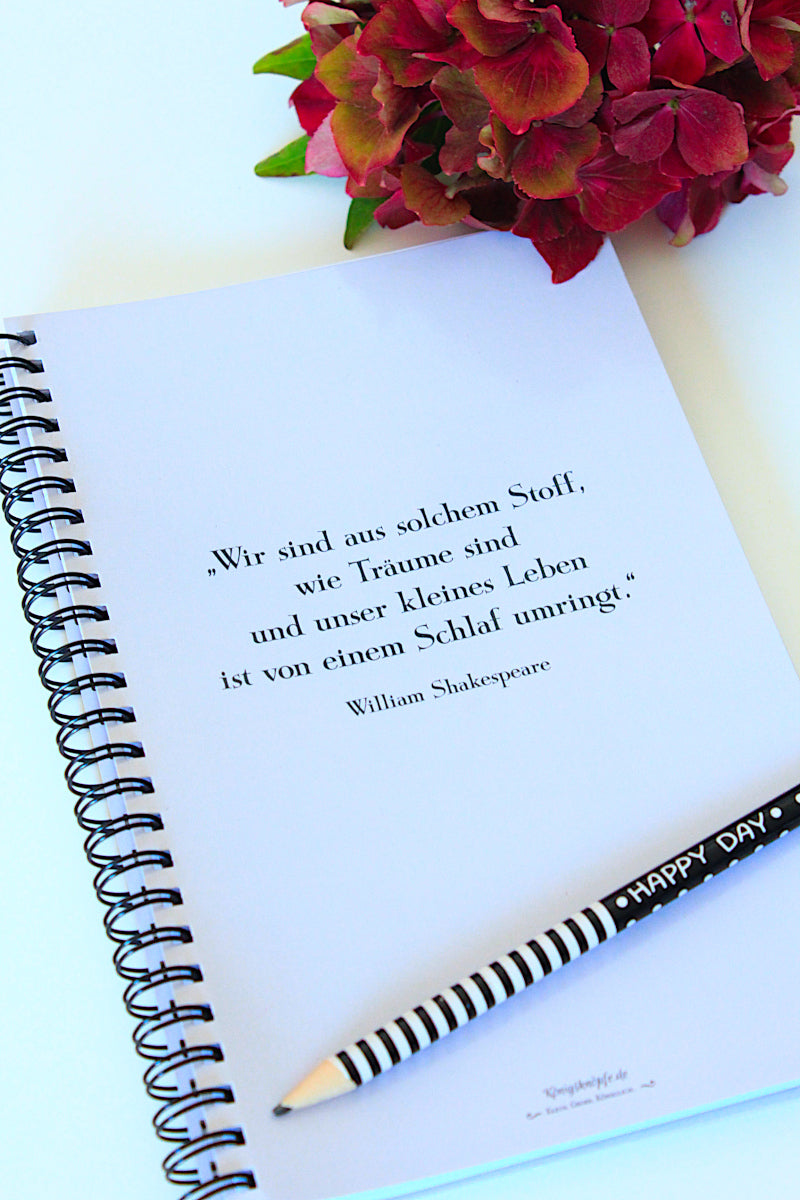 „Wir sind aus solchem Stoff,
wie Träume sind
und unser kleines Leben
ist von einem Schlaf umringt.“
William Shakespeare
HAPPY DAY
Königsknöpfe.de